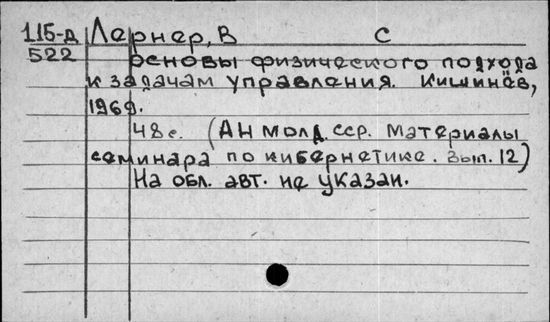 115-д Лернер, В С
522 Основы физического подхода
к задачам управления. Кишинёв,
1969.
48 с. (АН Молд ССР. Материалы
семинара по кибернетике. Вып. 12)
На обл. авт. не указан.